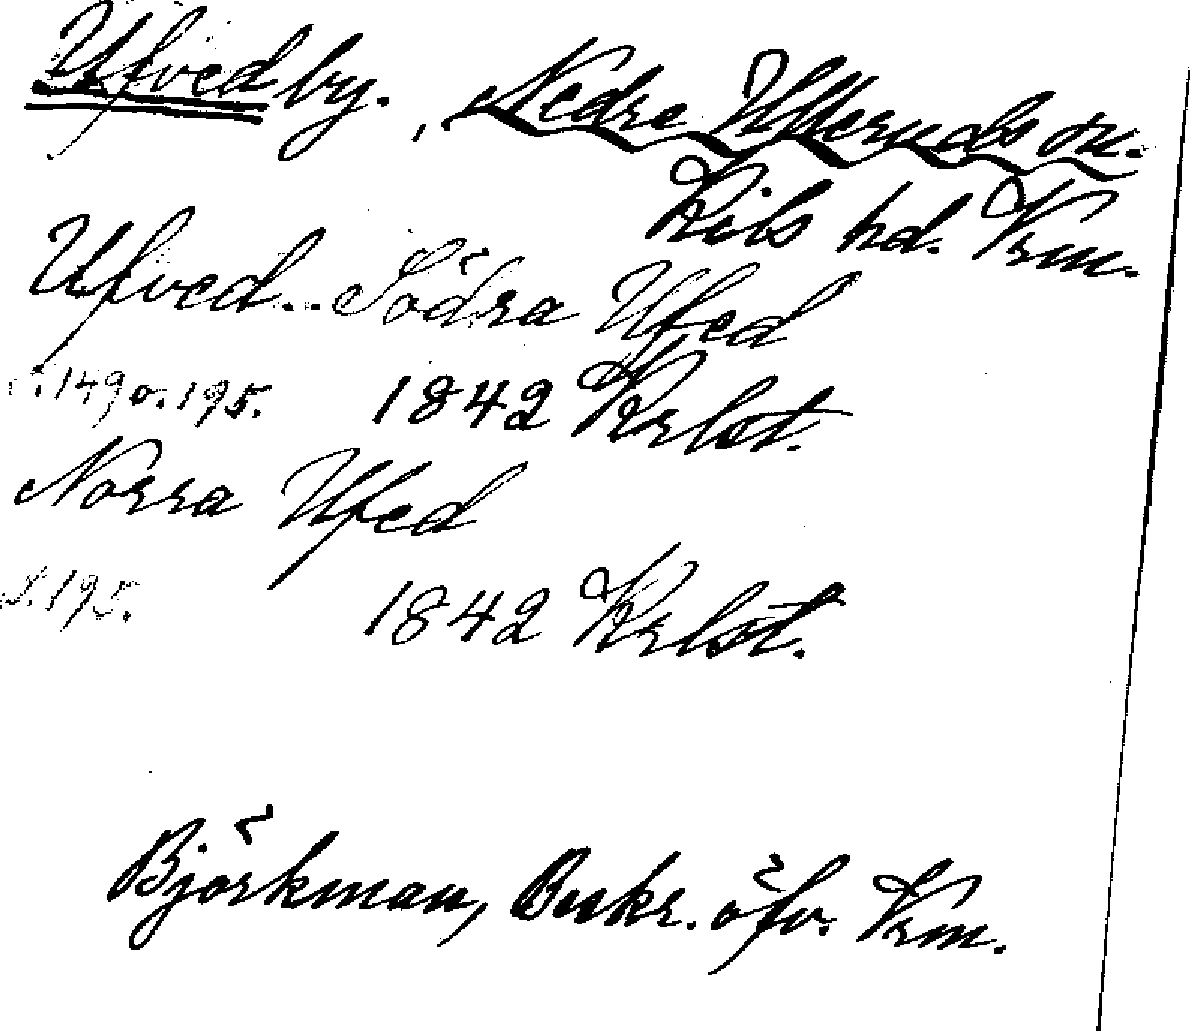 Ufved by. , Nedre Ulleruds sn.
Kils hd. Vrm.
Ufved. Södra Ufed
s. 149 o. 195. 1842 Krlst.
Norra Ufed
s. 195. 1842 Krlst.
Björkman, Beskr. öfv. Vrm.